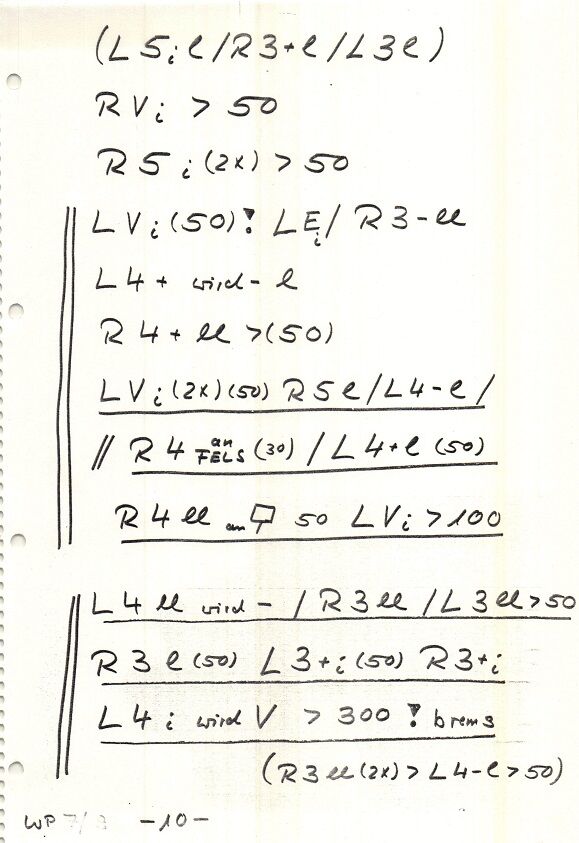 (L5i l/R3+l/L3l)
RVi > 50
R5i (2x) > 50
LVi (50)! LEi/ R3-ll
L4+ wird- l
R4+ ll >(50)
LVi (2x)(50) R5l/L4-l/
// R4 an FELS (30) / L4+l (50)
R4ll am 50 LVi >100
L4ll wird - / R3ll /L3ll>50
R3l(50) L3+i(50) R3+i
L4i wird V > 300 ! brems
(R3ll(2x)>L4-l>50)
WP 7/ -10-